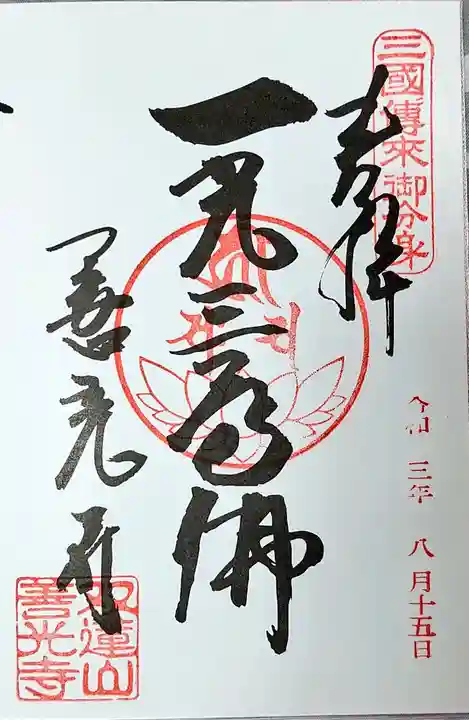 三國傳來御分身
奉拝
令和 三年 八月十五日
一光三尊佛
善光寺
蓮山
善光寺